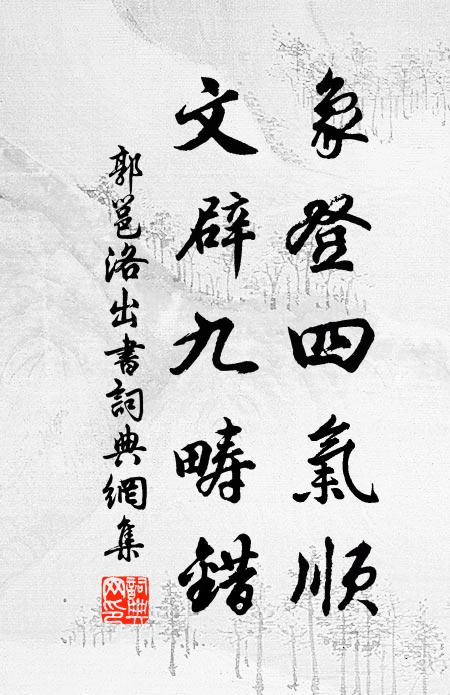 象登四氣順
文辟九疇錯
郭邕洛出書詞典網集
詞典